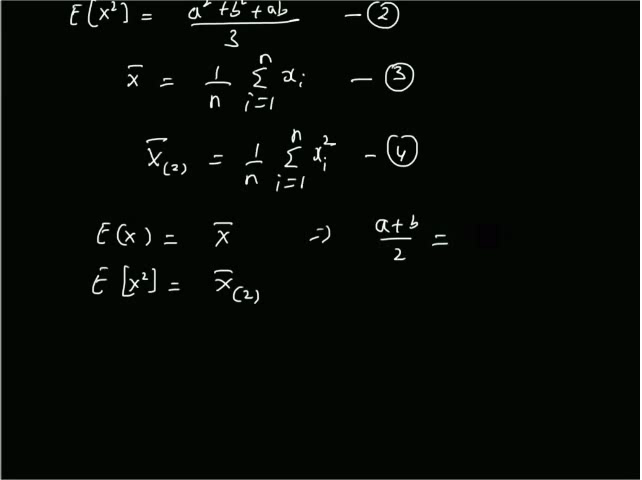 E[x²] = a²+b²+ab / 3 — ②
x̄ = 1/n Σ_{i=1}^{n} x_i — ③
x̄_(2) = 1/n Σ_{i=1}^{n} x_i² — ④
E(x) = x̄ ⇒ a+b / 2 =
E[x²] = x̄_(2)